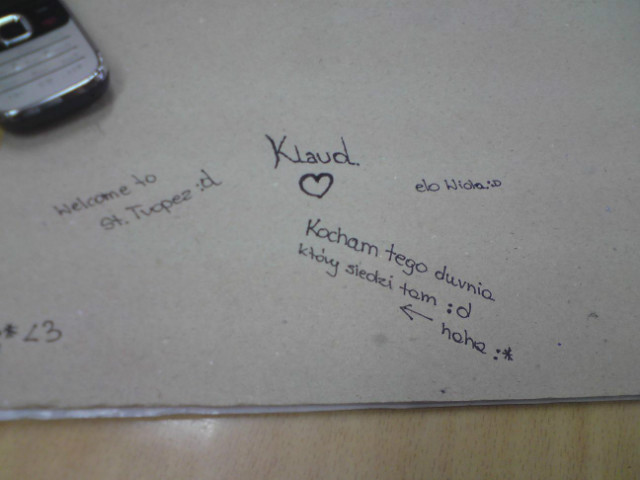 Klaud.
♡
Welcome to
St. Tropez :d
elo Wiola :D
Kocham tego durnia
który siedzi tam :d
← haha :*
* <3